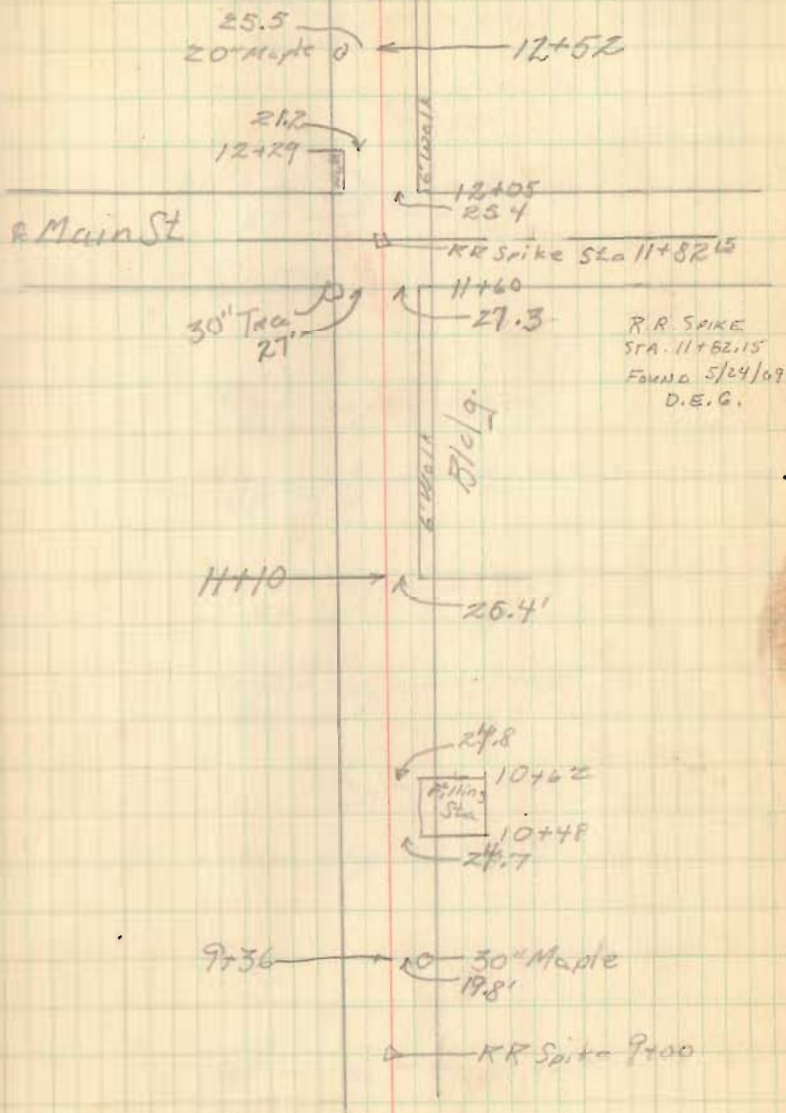 25.5
20" Maple 12+52
21.2
12+29
Wall
6' Walk
12+05
25.4
℄ Main St
RR Spike Sta 11+82.15
11+60
30" Tree
27'
27.3
R.R. SPIKE
STA. 11+82.15
FOUND 5/24/69
D.E.G.
Bldg.
6' Walk
11+10
26.4'
24.8
10+62
Filling
Sta
10+48
24.7
9+36
30" Maple
19.8'
RR Spike 9+00